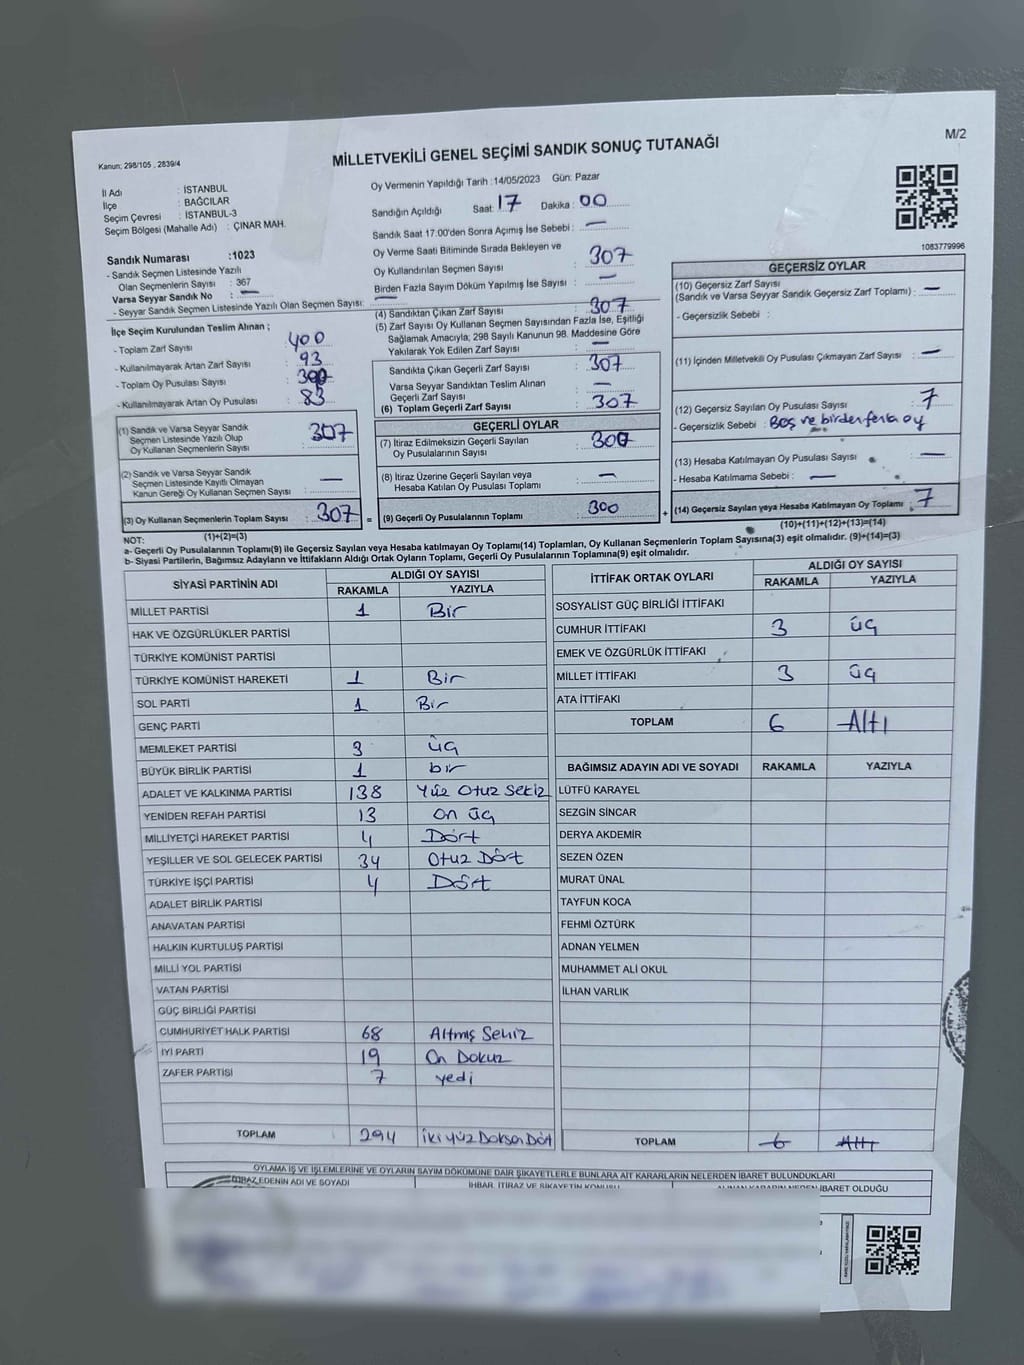 M/2
Kanun; 298/105 , 2839/4
MİLLETVEKİLİ GENEL SEÇİMİ SANDIK SONUÇ TUTANAĞI
İl Adı : İSTANBUL
İlçe : BAĞCILAR
Seçim Çevresi : İSTANBUL-3
Seçim Bölgesi (Mahalle Adı) : ÇINAR MAH.
Sandık Numarası :1023
- Sandık Seçmen Listesinde Yazılı
Olan Seçmenlerin Sayısı : 367
Varsa Seyyar Sandık No : —
- Seyyar Sandık Seçmen Listesinde Yazılı Olan Seçmen Sayısı: —
İlçe Seçim Kurulundan Teslim Alınan ;
- Toplam Zarf Sayısı : 400
- Kullanılmayarak Artan Zarf Sayısı : 93
- Toplam Oy Pusulası Sayısı : 390
- Kullanılmayarak Artan Oy Pusulası : 83
(1) Sandık ve Varsa Seyyar Sandık
Seçmen Listesinde Yazılı Olup
Oy Kullanan Seçmenlerin Sayısı : 307
(2) Sandık ve Varsa Seyyar Sandık
Seçmen Listesinde Kayıtlı Olmayan
Kanun Gereği Oy Kullanan Seçmen Sayısı : —
(3) Oy Kullanan Seçmenlerin Toplam Sayısı : 307 =
Oy Vermenin Yapıldığı Tarih :14/05/2023 Gün: Pazar
Sandığın Açıldığı Saat: 17 Dakika : 00
Sandık Saat 17.00'den Sonra Açımış İse Sebebi : —
Oy Verme Saati Bitiminde Sırada Bekleyen ve
Oy Kullandırılan Seçmen Sayısı : 307
Birden Fazla Sayım Döküm Yapılmış İse Sayısı : —
(4) Sandıktan Çıkan Zarf Sayısı : 307
(5) Zarf Sayısı Oy Kullanan Seçmen Sayısından Fazla İse, Eşitliği
Sağlamak Amacıyla; 298 Sayılı Kanunun 98. Maddesine Göre
Yakılarak Yok Edilen Zarf Sayısı : —
Sandıkta Çıkan Geçerli Zarf Sayısı : 307
Varsa Seyyar Sandıktan Teslim Alınan
Geçerli Zarf Sayısı : —
(6) Toplam Geçerli Zarf Sayısı : 307
GEÇERLİ OYLAR
(7) İtiraz Edilmeksizin Geçerli Sayılan
Oy Pusulalarının Sayısı : 300
(8) İtiraz Üzerine Geçerli Sayılan veya
Hesaba Katılan Oy Pusulası Toplamı : —
(9) Geçerli Oy Pusulalarının Toplamı : 300 +
1083779996
GEÇERSİZ OYLAR
(10) Geçersiz Zarf Sayısı
(Sandık ve Varsa Seyyar Sandık Geçersiz Zarf Toplamı) : —
- Geçersizlik Sebebi :
(11) İçinden Milletvekili Oy Pusulası Çıkmayan Zarf Sayısı : —
(12) Geçersiz Sayılan Oy Pusulası Sayısı : 7
- Geçersizlik Sebebi : Boş ve birden fazla oy
(13) Hesaba Katılmayan Oy Pusulası Sayısı : —
- Hesaba Katılmama Sebebi : —
(14) Geçersiz Sayılan veya Hesaba Katılmayan Oy Toplamı : 7
(1)+(2)=(3)
(10)+(11)+(12)+(13)=(14)
NOT:
a- Geçerli Oy Pusulalarının Toplamı(9) ile Geçersiz Sayılan veya Hesaba katılmayan Oy Toplamı(14) Toplamları, Oy Kullanan Seçmenlerin Toplam Sayısına(3) eşit olmalıdır. (9)+(14)=(3)
b- Siyasi Partilerin, Bağımsız Adayların ve İttifakların Aldığı Ortak Oyların Toplamı, Geçerli Oy Pusulalarının Toplamına(9) eşit olmalıdır.
SİYASİ PARTİNİN ADI ALDIĞI OY SAYISI
RAKAMLA YAZIYLA
MİLLET PARTİSİ 1 Bir
HAK VE ÖZGÜRLÜKLER PARTİSİ
TÜRKİYE KOMÜNİST PARTİSİ
TÜRKİYE KOMÜNİST HAREKETİ 1 Bir
SOL PARTİ 1 Bir
GENÇ PARTİ
MEMLEKET PARTİSİ 3 üç
BÜYÜK BİRLİK PARTİSİ 1 bir
ADALET VE KALKINMA PARTİSİ 138 Yüz Otuz Sekiz
YENİDEN REFAH PARTİSİ 13 on üç
MİLLİYETÇİ HAREKET PARTİSİ 4 Dört
YEŞİLLER VE SOL GELECEK PARTİSİ 34 Otuz Dört
TÜRKİYE İŞÇİ PARTİSİ 4 Dört
ADALET BİRLİK PARTİSİ
ANAVATAN PARTİSİ
HALKIN KURTULUŞ PARTİSİ
MİLLİ YOL PARTİSİ
VATAN PARTİSİ
GÜÇ BİRLİĞİ PARTİSİ
CUMHURİYET HALK PARTİSİ 68 Altmış Sekiz
İYİ PARTİ 19 On Dokuz
ZAFER PARTİSİ 7 yedi
TOPLAM 294 iki yüz Doksan Dört
İTTİFAK ORTAK OYLARI ALDIĞI OY SAYISI
RAKAMLA YAZIYLA
SOSYALİST GÜÇ BİRLİĞİ İTTİFAKI
CUMHUR İTTİFAKI 3 üç
EMEK VE ÖZGÜRLÜK İTTİFAKI
MİLLET İTTİFAKI 3 üç
ATA İTTİFAKI
TOPLAM 6 Altı
BAĞIMSIZ ADAYIN ADI VE SOYADI RAKAMLA YAZIYLA
LÜTFÜ KARAYEL
SEZGİN SİNCAR
DERYA AKDEMİR
SEZEN ÖZEN
MURAT ÜNAL
TAYFUN KOCA
FEHMİ ÖZTÜRK
ADNAN YELMEN
MUHAMMET ALİ OKUL
İLHAN VARLIK
TOPLAM 6 Altı
OYLAMA İŞ VE İŞLEMLERİNE VE OYLARIN SAYIM DÖKÜMÜNE DAİR ŞİKAYETLERLE BUNLARA AİT KARARLARIN NELERDEN İBARET BULUNDUKLARI
İTİRAZ EDENİN ADI VE SOYADI İHBAR, İTİRAZ VE ŞİKAYETİN KONUSU ALINAN KARARIN NEDEN İBARET OLDUĞU